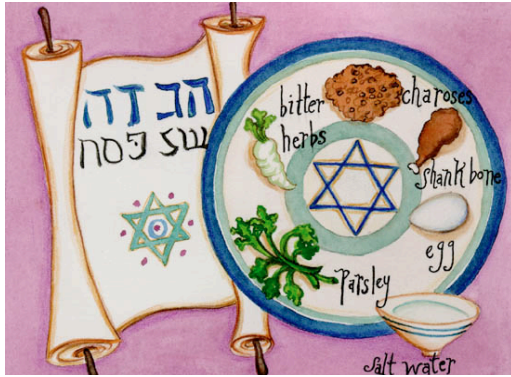 הגדה
של פסח
bitter
herbs
charoses
shank bone
egg
parsley
salt water